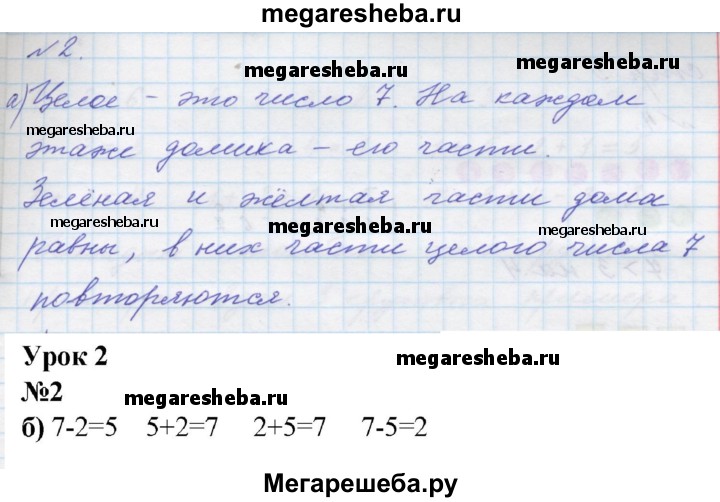 megaresheba.ru
№2.
megaresheba.ru
а) Целое – это число 7. На каждом
megaresheba.ru megaresheba.ru
этаже домика – его части.
Зелёная и жёлтая части дома
megaresheba.ru megaresheba.ru megaresheba.ru
равны, в них части целого числа 7
повторяются.
Урок 2 megaresheba.ru
№2 megaresheba.ru
б) 7-2=5 5+2=7 2+5=7 7-5=2
Мегарешеба.ру